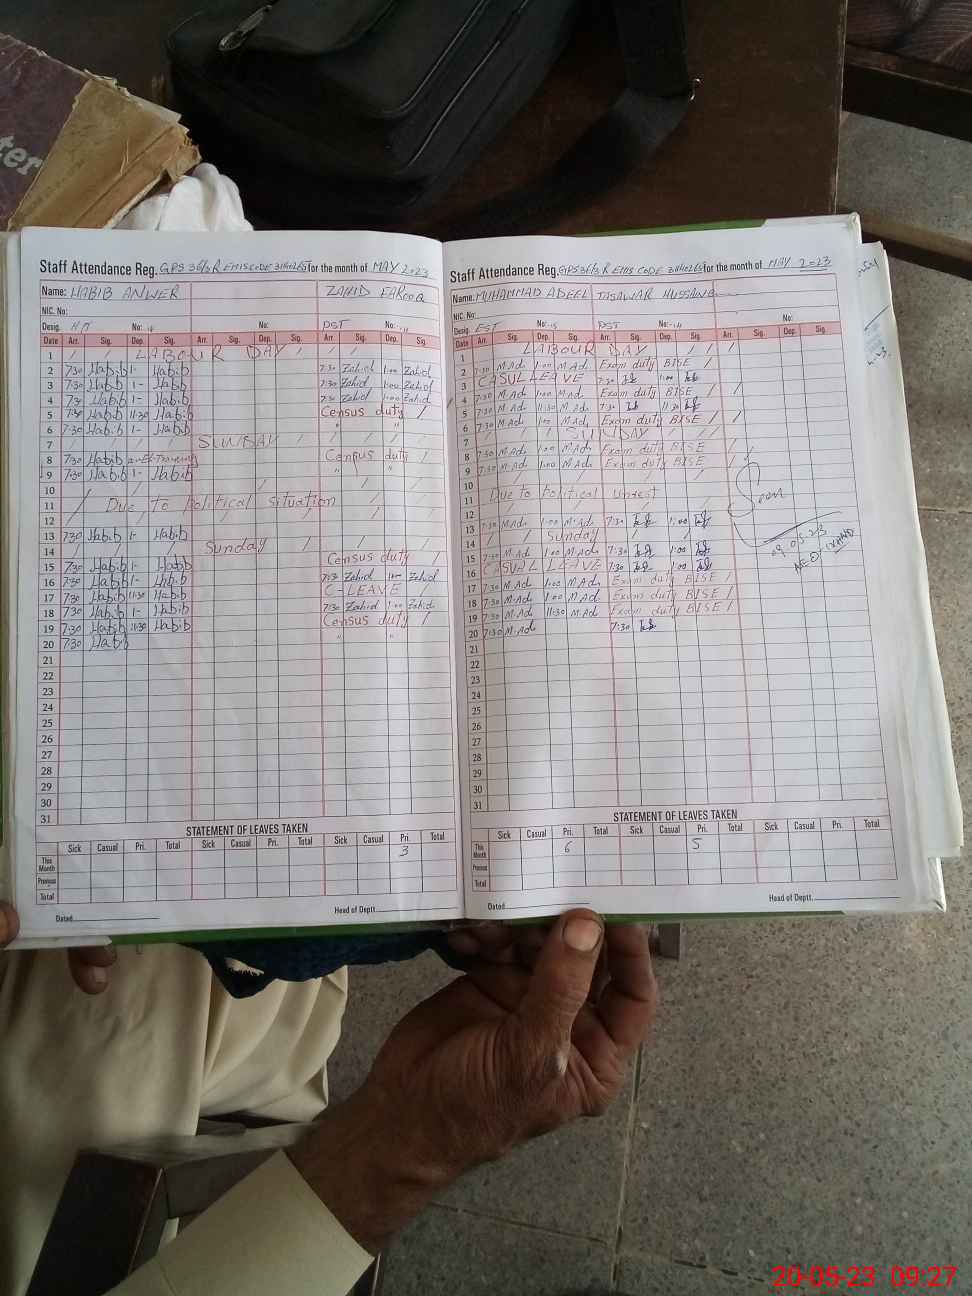 ter
Staff Attendance Reg. GPS 36/3R EMIS CODE for the month of MAY 2023
Name: HABIB ANWER ZAHID FAROOQ
NIC. No:
Desig. No: No: PST No:
Date Arr. Sig. Dep. Sig. Arr. Sig. Dep. Sig. Arr. Sig. Dep. Sig.
1 / / LABOUR DAY / /
2 7:30 Habib 1- Habib 7:30 Zahid 1:00 Zahid
3 7:30 Habib 1- Habib 7:30 Zahid 1:00 Zahid
4 7:30 Habib 1- Habib 7:30 Zahid 1:00 Zahid
5 7:30 Habib 11:30 Habib Census duty /
6 7:30 Habib 1- Habib " "
7 / / / / SUNDAY / / / / /
8 7:30 Habib Census duty /
9 7:30 Habib 1- Habib " "
10
11 Due to Political situation
12
13 7:30 Habib 1- Habib
14 / / / Sunday / / / /
15 7:30 Habib 1- Habib Census duty /
16 7:30 Habib 1- Habib 7:30 Zahid 1:00 Zahid
17 7:30 Habib 11:30 Habib C-LEAVE /
18 7:30 Habib 1- Habib 7:30 Zahid 1:00 Zahid
19 7:30 Habib 11:30 Habib Census duty /
20 7:30 Habib " "
21
22
23
24
25
26
27
28
29
30
31
STATEMENT OF LEAVES TAKEN
Sick Casual Pri. Total Sick Casual Pri. Total Sick Casual Pri. Total
This Month 3
Previous
Total
Dated Head of Deptt.
Staff Attendance Reg. GPS 36/3R EMIS CODE for the month of MAY 2023
Name: MUHAMMAD ADEEL TASAWAR HUSSAIN
NIC. No:
Desig. EST No: PST No: No:
Date Arr. Sig. Dep. Sig. Arr. Sig. Dep. Sig. Arr. Sig. Dep. Sig.
1 LABOUR DAY / /
2 7:30 M.Ad 1:00 M.Ad Exam duty BISE /
3 CASUL LEAVE 7:30 1:00
4 7:30 M.Ad 1:00 M.Ad Exam duty BISE /
5 7:30 M.Ad 11:30 M.Ad 7:30 11:30
6 7:30 M.Ad 1:00 M.Ad Exam duty BISE /
7 / / / / SUNDAY / / /
8 7:30 M.Ad 1:00 M.Ad Exam duty BISE /
9 7:30 M.Ad 1:00 M.Ad Exam duty BISE /
10
11 Due to Political unrest
12
13 7:30 M.Ad 1:00 M.Ad 7:30 1:00
14 / / / Sunday / / / /
15 7:30 M.Ad 1:00 M.Ad 7:30 1:00
16 CASUAL LEAVE 7:30 1:00
17 7:30 M.Ad 1:00 M.Ad Exam duty BISE /
18 7:30 M.Ad 1:00 M.Ad Exam duty BISE /
19 7:30 M.Ad 11:30 M.Ad Exam duty BISE /
20 7:30 M.Ad 7:30
21
22
23
24
25
26
27
28
29
30
31
Seen
09.05.23
AEO
STATEMENT OF LEAVES TAKEN
Sick Casual Pri. Total Sick Casual Pri. Total Sick Casual Pri. Total
This Month 6 5
Previous
Total
Dated Head of Deptt.
20-05-23 09:27